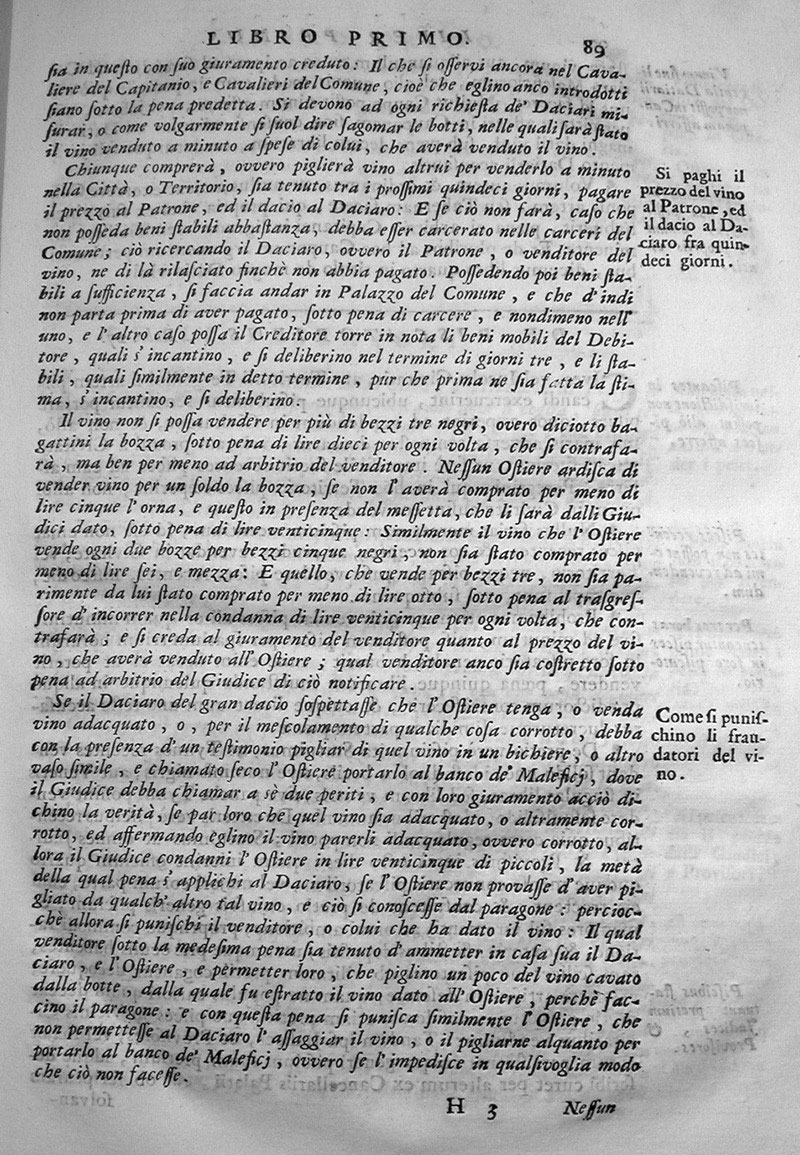 LIBRO PRIMO.
89
ſia in queſto con ſuo giuramento creduto: Il che ſi oſſervi ancora nel Cava-
liere del Capitanio, e Cavalieri del Comune, cioè che eglino anco introdotti
ſiano ſotto la pena predetta. Si devono ad ogni richieſta de' Daciari mi-
ſurar, o come volgarmente ſi ſuol dire ſagomar le botti, nelle quali ſarà ſtato
il vino venduto a minuto a ſpeſe di colui, che averà venduto il vino.
Chiunque comprerà, ovvero piglierà vino altrui per venderlo a minuto
nella Città, o Territorio, ſia tenuto tra i proſſimi quindeci giorni, pagare
il prezzo al Patrone, ed il dacio al Daciaro: E ſe ciò non farà, caſo che
non poſſeda beni ſtabili abbaſtanza, debba eſſer carcerato nelle carceri del
Comune; ciò ricercando il Daciaro, ovvero il Patrone, o venditore del
vino, ne di là rilaſciato finchè non abbia pagato. Poſſedendo poi beni ſta-
bili a ſufficienza, ſi faccia andar in Palazzo del Comune, e che d'indi
non parta prima di aver pagato, ſotto pena di carcere, e nondimeno nell'
uno, e l'altro caſo poſſa il Creditore torre in nota li beni mobili del Debi-
tore, quali s'incantino, e ſi deliberino nel termine di giorni tre, e li ſta-
bili, quali ſimilmente in detto termine, pur che prima ne ſia fatta la ſti-
ma, s'incantino, e ſi deliberino.
Si paghi il
prezzo del vino
al Patrone, ed
il dacio al Da-
ciaro fra quin-
deci giorni.
Il vino non ſi poſſa vendere per più di bezzi tre negri, overo diciotto ba-
gattini la bozza, ſotto pena di lire dieci per ogni volta, che ſi contrafa-
rà, ma ben per meno ad arbitrio del venditore. Neſſun Oſtiere ardiſca di
vender vino per un ſoldo la bozza, ſe non l'averà comprato per meno di
lire cinque l'orna, e queſto in preſenza del meſſetta, che li ſarà dalli Giu-
dici dato, ſotto pena di lire venticinque: Similmente il vino che l'Oſtiere
vende ogni due bozze per bezzi cinque negri, non ſia ſtato comprato per
meno di lire ſei, e mezza: E quello, che vende per bezzi tre, non ſia pa-
rimente da lui ſtato comprato per meno di lire otto, ſotto pena al traſgreſ-
ſore d'incorrer nella condanna di lire venticinque per ogni volta, che con-
trafarà; e ſi creda al giuramento del venditore quanto al prezzo del vi-
no, che averà venduto all'Oſtiere; qual venditore anco ſia coſtretto ſotto
pena ad arbitrio del Giudice di ciò notificare.
Se il Daciaro del gran dacio ſoſpettaſſe che l'Oſtiere tenga, o venda
vino adacquato, o, per il meſcolamento di qualche coſa corrotto, debba
con la preſenza d'un teſtimonio pigliar di quel vino in un bichiere, o altro
vaſo ſimile, e chiamato ſeco l'Oſtiere portarlo al banco de' Maleficj, dove
il Giudice debba chiamar a sè due periti, e con loro giuramento acciò di-
chino la verità, ſe par loro che quel vino ſia adacquato, o altramente cor-
rotto, ed affermando èglino il vino parerli adacquato, ovvero corrotto, al-
lora il Giudice condanni l'Oſtiere in lire venticinque di piccoli, la metà
della qual pena s'applichi al Daciaro, ſe l'Oſtiere non provaſſe d'aver pi-
gliato da qualch'altro tal vino, e ciò ſi conoſceſſe dal paragone: percioc-
chè allora ſi puniſchi il venditore, o colui che ha dato il vino: Il qual
venditore ſotto la medeſima pena ſia tenuto d'ammetter in caſa ſua il Da-
ciaro, e l'Oſtiere, e permetter loro, che piglino un poco del vino cavato
dalla botte, dalla quale fu eſtratto il vino dato all'Oſtiere, perchè fac-
cino il paragone: e con queſta pena ſi puniſca ſimilmente l'Oſtiere, che
non permetteſſe al Daciaro l'aſſaggiar il vino, o il pigliarne alquanto per
portarlo al banco de' Maleficj, ovvero ſe l'impediſce in qualſivoglia modo
che ciò non faceſſe.
Come ſi puniſ-
chino li frau-
datori del vi-
no.
H 3
Neſſun